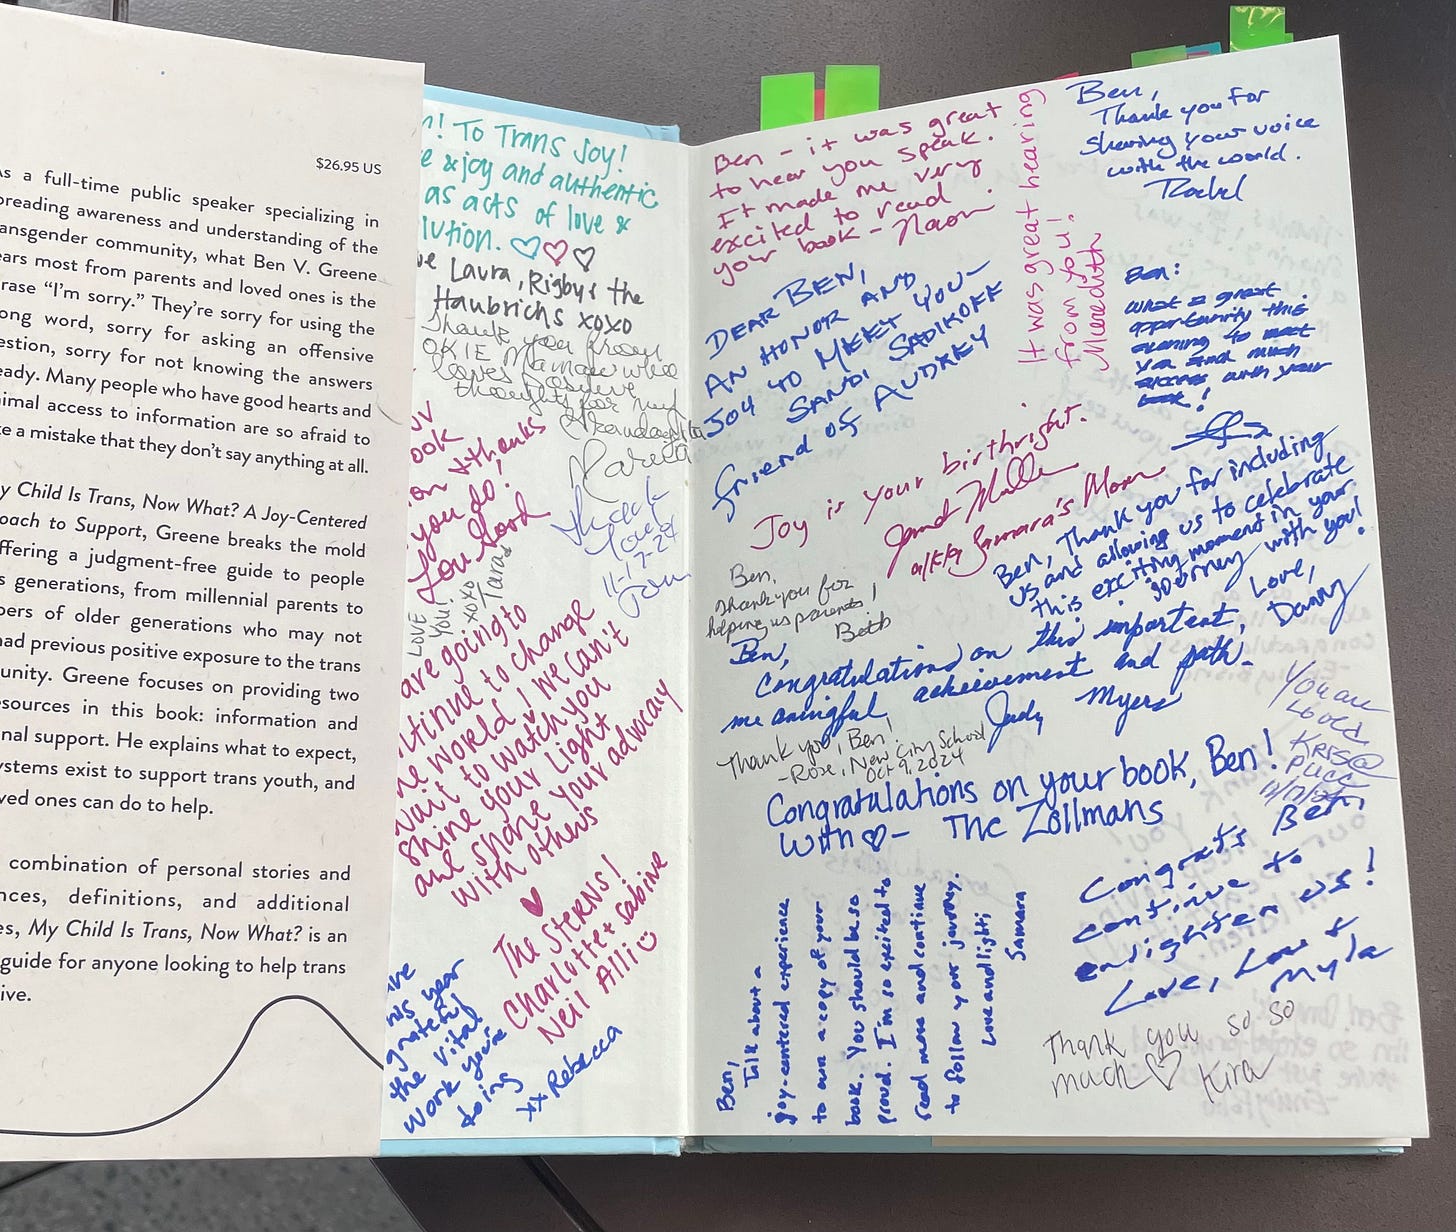 $26.95 US
As a full-time public speaker specializing in
preading awareness and understanding of the
ansgender community, what Ben V. Greene
ears most from parents and loved ones is the
rase “I’m sorry.” They’re sorry for using the
ong word, sorry for asking an offensive
estion, sorry for not knowing the answers
eady. Many people who have good hearts and
nimal access to information are so afraid to
ke a mistake that they don’t say anything at all.
y Child Is Trans, Now What? A Joy-Centered
oach to Support, Greene breaks the mold
ffering a judgment-free guide to people
s generations, from millennial parents to
bers of older generations who may not
had previous positive exposure to the trans
unity. Greene focuses on providing two
esources in this book: information and
nal support. He explains what to expect,
ystems exist to support trans youth, and
ved ones can do to help.
combination of personal stories and
nces, definitions, and additional
es, My Child Is Trans, Now What? is an
guide for anyone looking to help trans
ive.
n! To Trans Joy!
e & joy and authentic
as acts of love &
lution.
ve Laura, Rigby & the
Haubrichs xoxo
Thank you from
OKIE Mamaw who
loves positive
thoughts for my
ook
on & thanks
you do!
LOVE
YOU!
xoxo
Tara
Thank
You
11-17-24
are going to
ntinue to change
he world, we can't
wait to watch you
shine your light
and share your advocacy
with others
The Sterns!
Charlotte + Sabine
Neil Alli
his year
grateful
the vital
work you're
doing
xx Rebecca
Ben - it was great
to hear you speak.
It made me very
excited to read
your book - Naomi
It was great hearing
from you!
Meredith
Ben,
Thank you for
sharing your voice
with the world.
Rachel
DEAR BEN,
AN HONOR AND
JOY TO MEET YOU-
SANDI SADIKOFF
friend of AUDREY
Ben:
What a great
opportunity this
evening to meet
you and much
success with your
book!
Joy is your birthright.
a/k/a Samara's Mom
Ben, Thank you for including
us and allowing us to celebrate
this exciting moment in your
journey with you!
Love,
Danny
Ben,
Thank you for
helping us parents!
Beth
Ben,
Congratulations on this important,
meaningful achievement and path-
Judy Myers
Thank you, Ben!
-Rose, New City School
Oct 9, 2024
You are
Loved
KRIS@
PUCC
Congratulations on your book, Ben!
with ♡- The Zollmans
Congrats Ben,
continue to
enlighten us!
Love, Lou &
Myla
Ben,
Talk about a
joy-centered experience
to own a copy of your
book. You should be so
proud. I'm so excited to
read more and continue
to follow your journey.
Love and light;
Samara
Thank you so so
much ♡ Kira